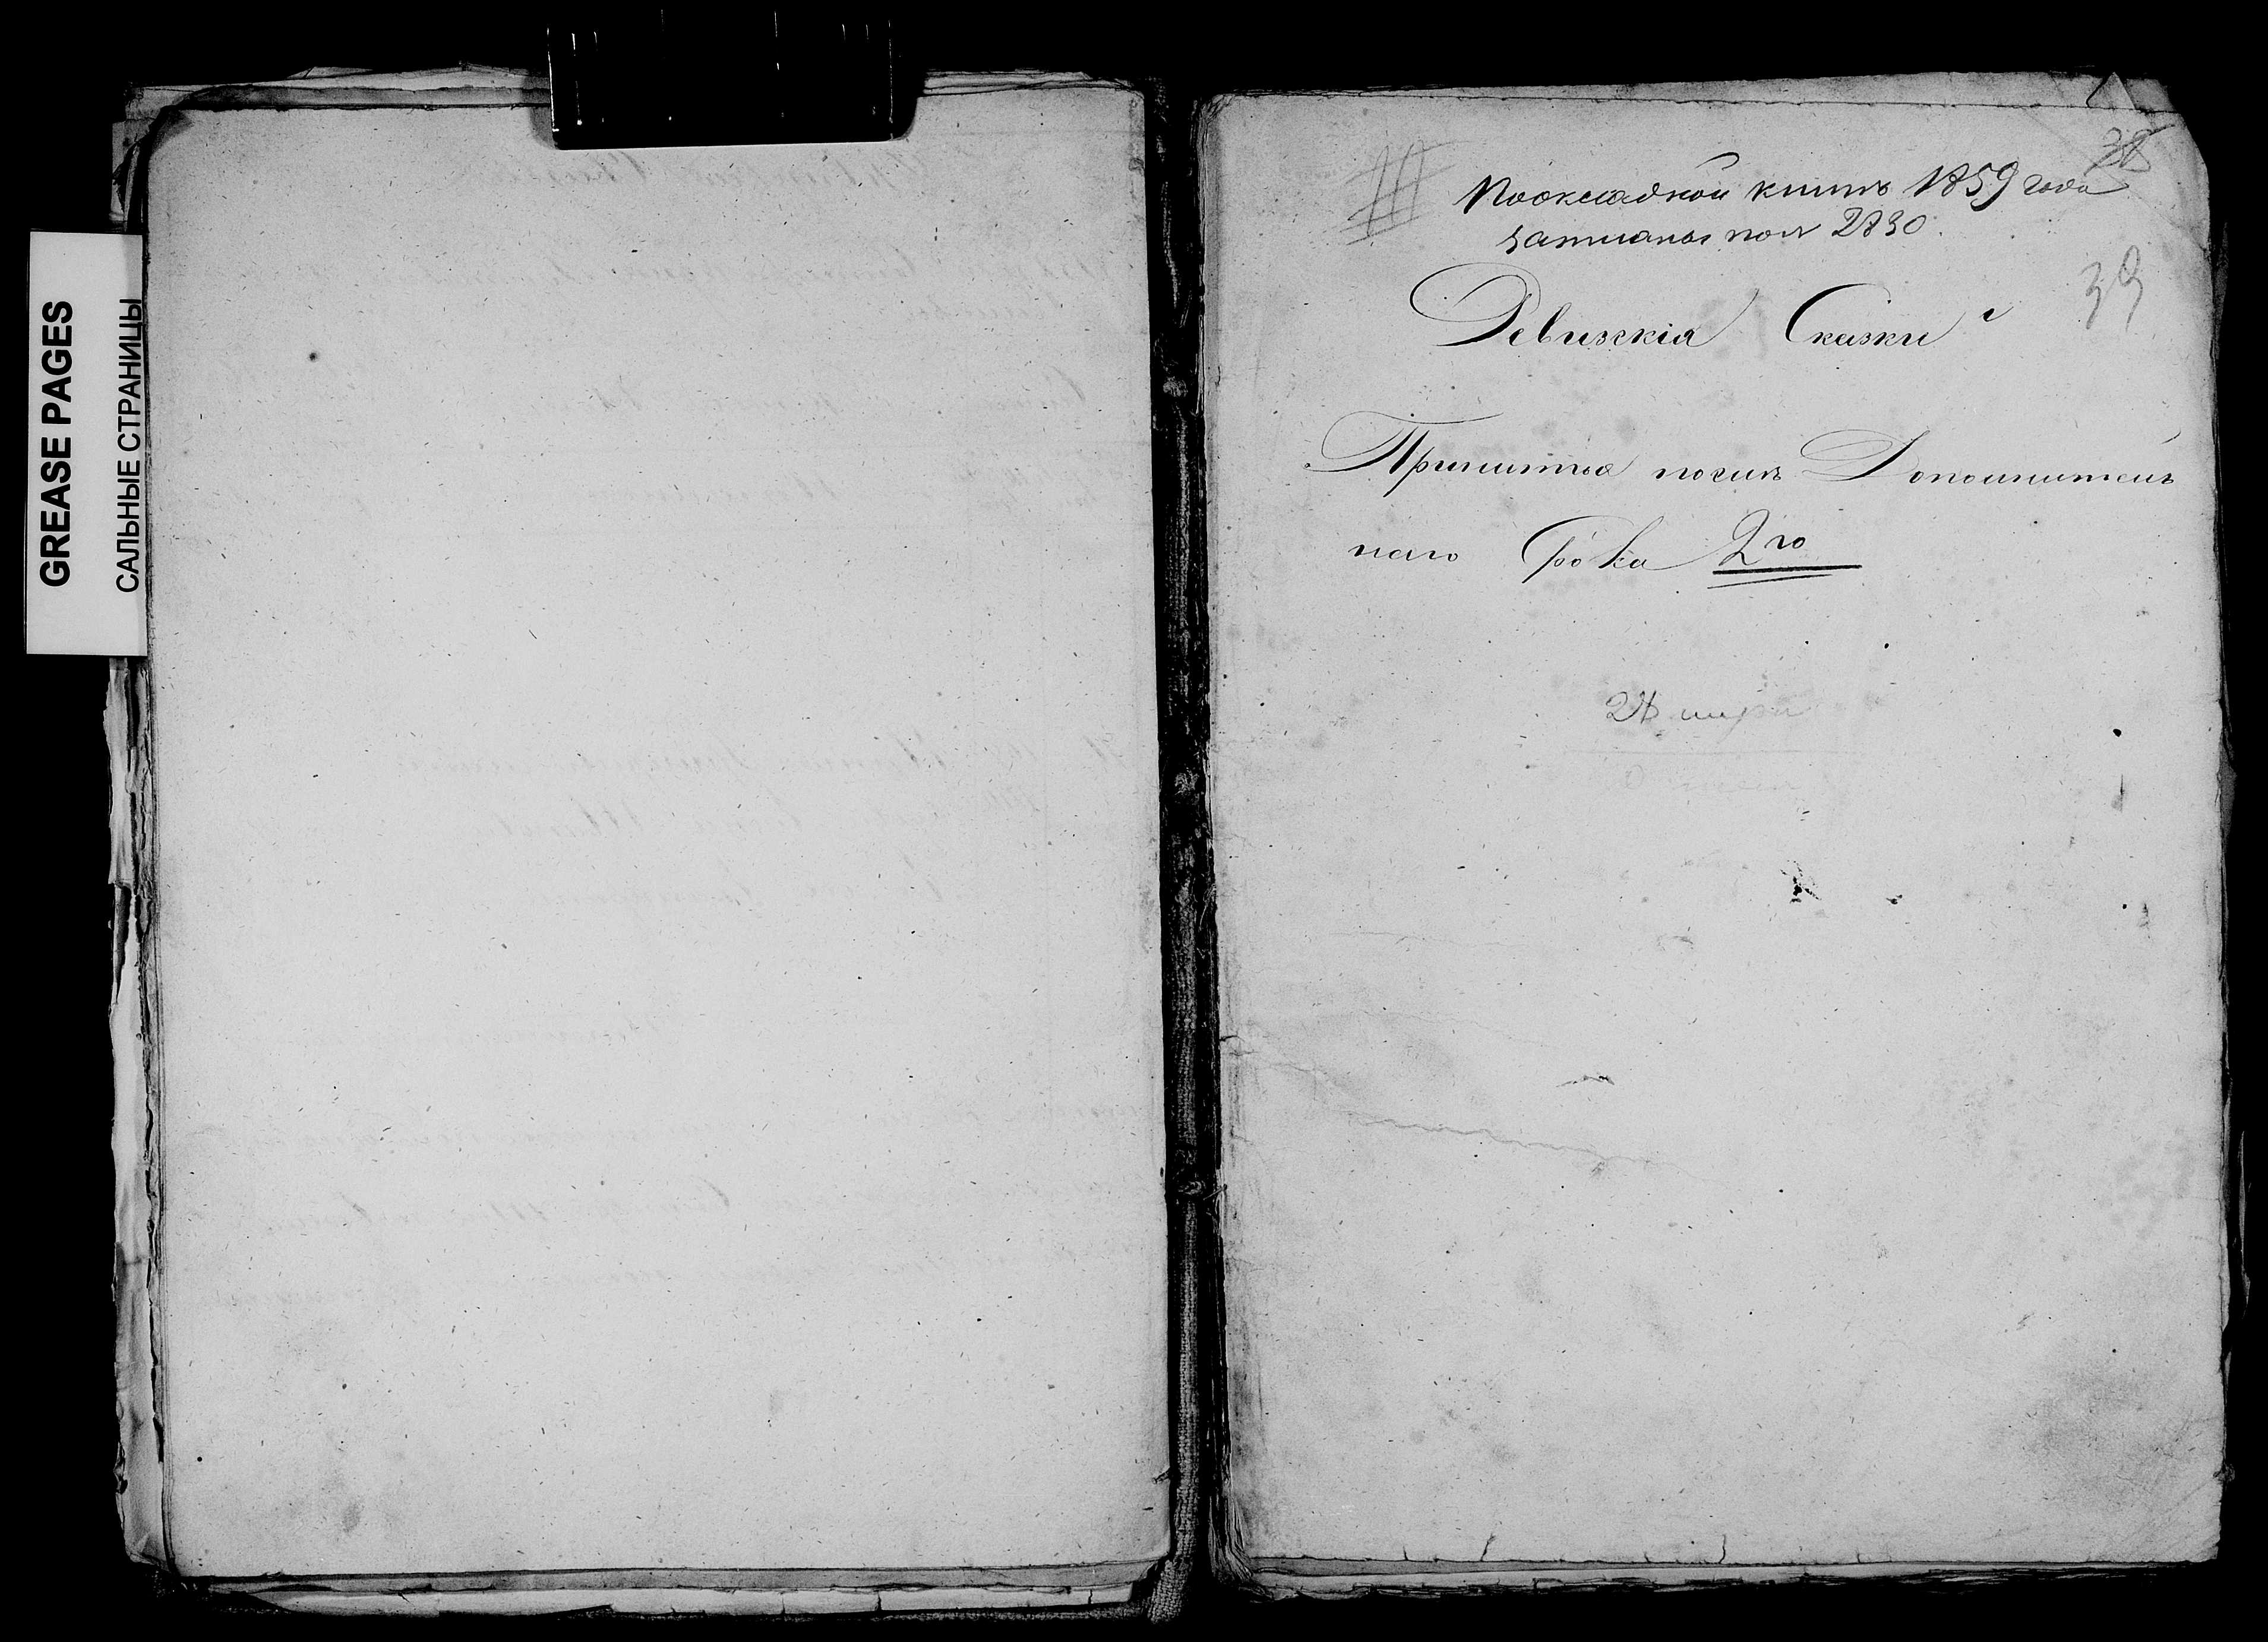 GREASE PAGES
САЛЬНЫЕ СТРАНИЦЫ
38
По окладной книгѣ 1859 года
записаны под № 2830.
39
Ревизскія Сказки
Принятыя послѣ Дополнитель
наго Срока 2го